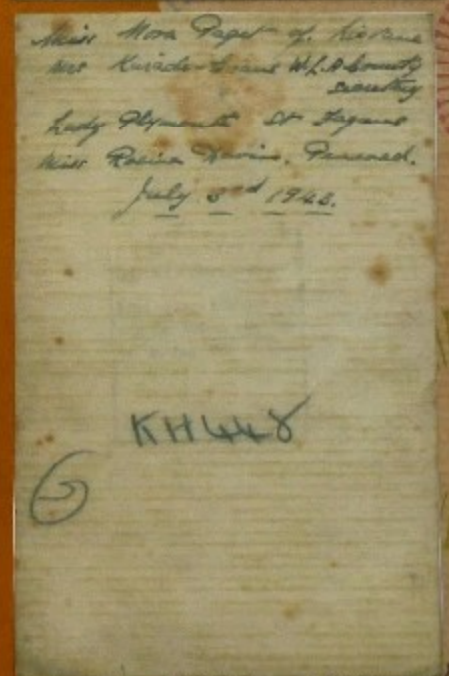 Miss Nora Paget of
Mrs Evans W.L.A. County
Secretary
Lady Plymouth St Fagans
Miss Rosina Davies,
July 3rd 1943.
KH448